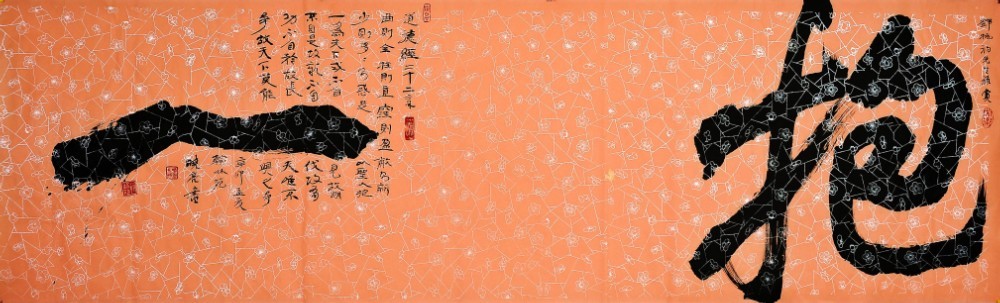 先生雅賞
抱一
道德經二十二章
曲則全枉則直窪則盈敝則新
少則得多則惑是以聖人抱
一為天下式不自見故明
不自是故彰不自伐故有
功不自矜故長夫唯不
爭故天下莫能與之爭
辛卯
書